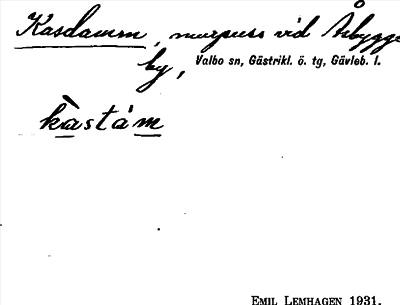 Kasdamm, murpuss vid Åbyggeby,
Valbo sn, Gästrikl. ö. tg, Gävleb. l.
kàstám
EMIL LEMHAGEN 1931.